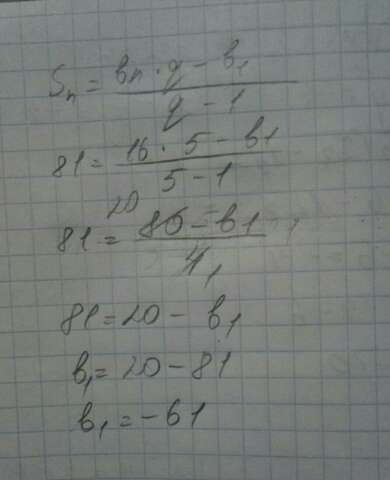 Sₙ = (bₙ · q − b₁) / (q − 1)
81 = (16 · 5 − b1) / (5 − 1)
81 = (80 − b1) / 4 20 1
81 = 20 − b₁
b₁ = 20 − 81
b₁ = −61